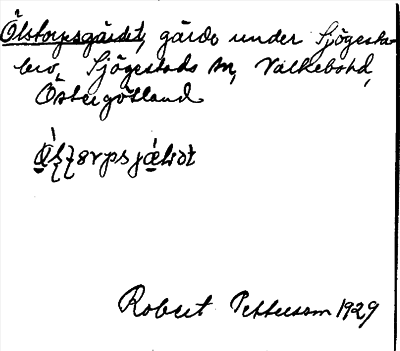 Ölstorpsgärdet, gärde under Sjögesta-
bro, Sjögestads sn, Valkebohd,
Östergötland
Robert Pettersson 1929